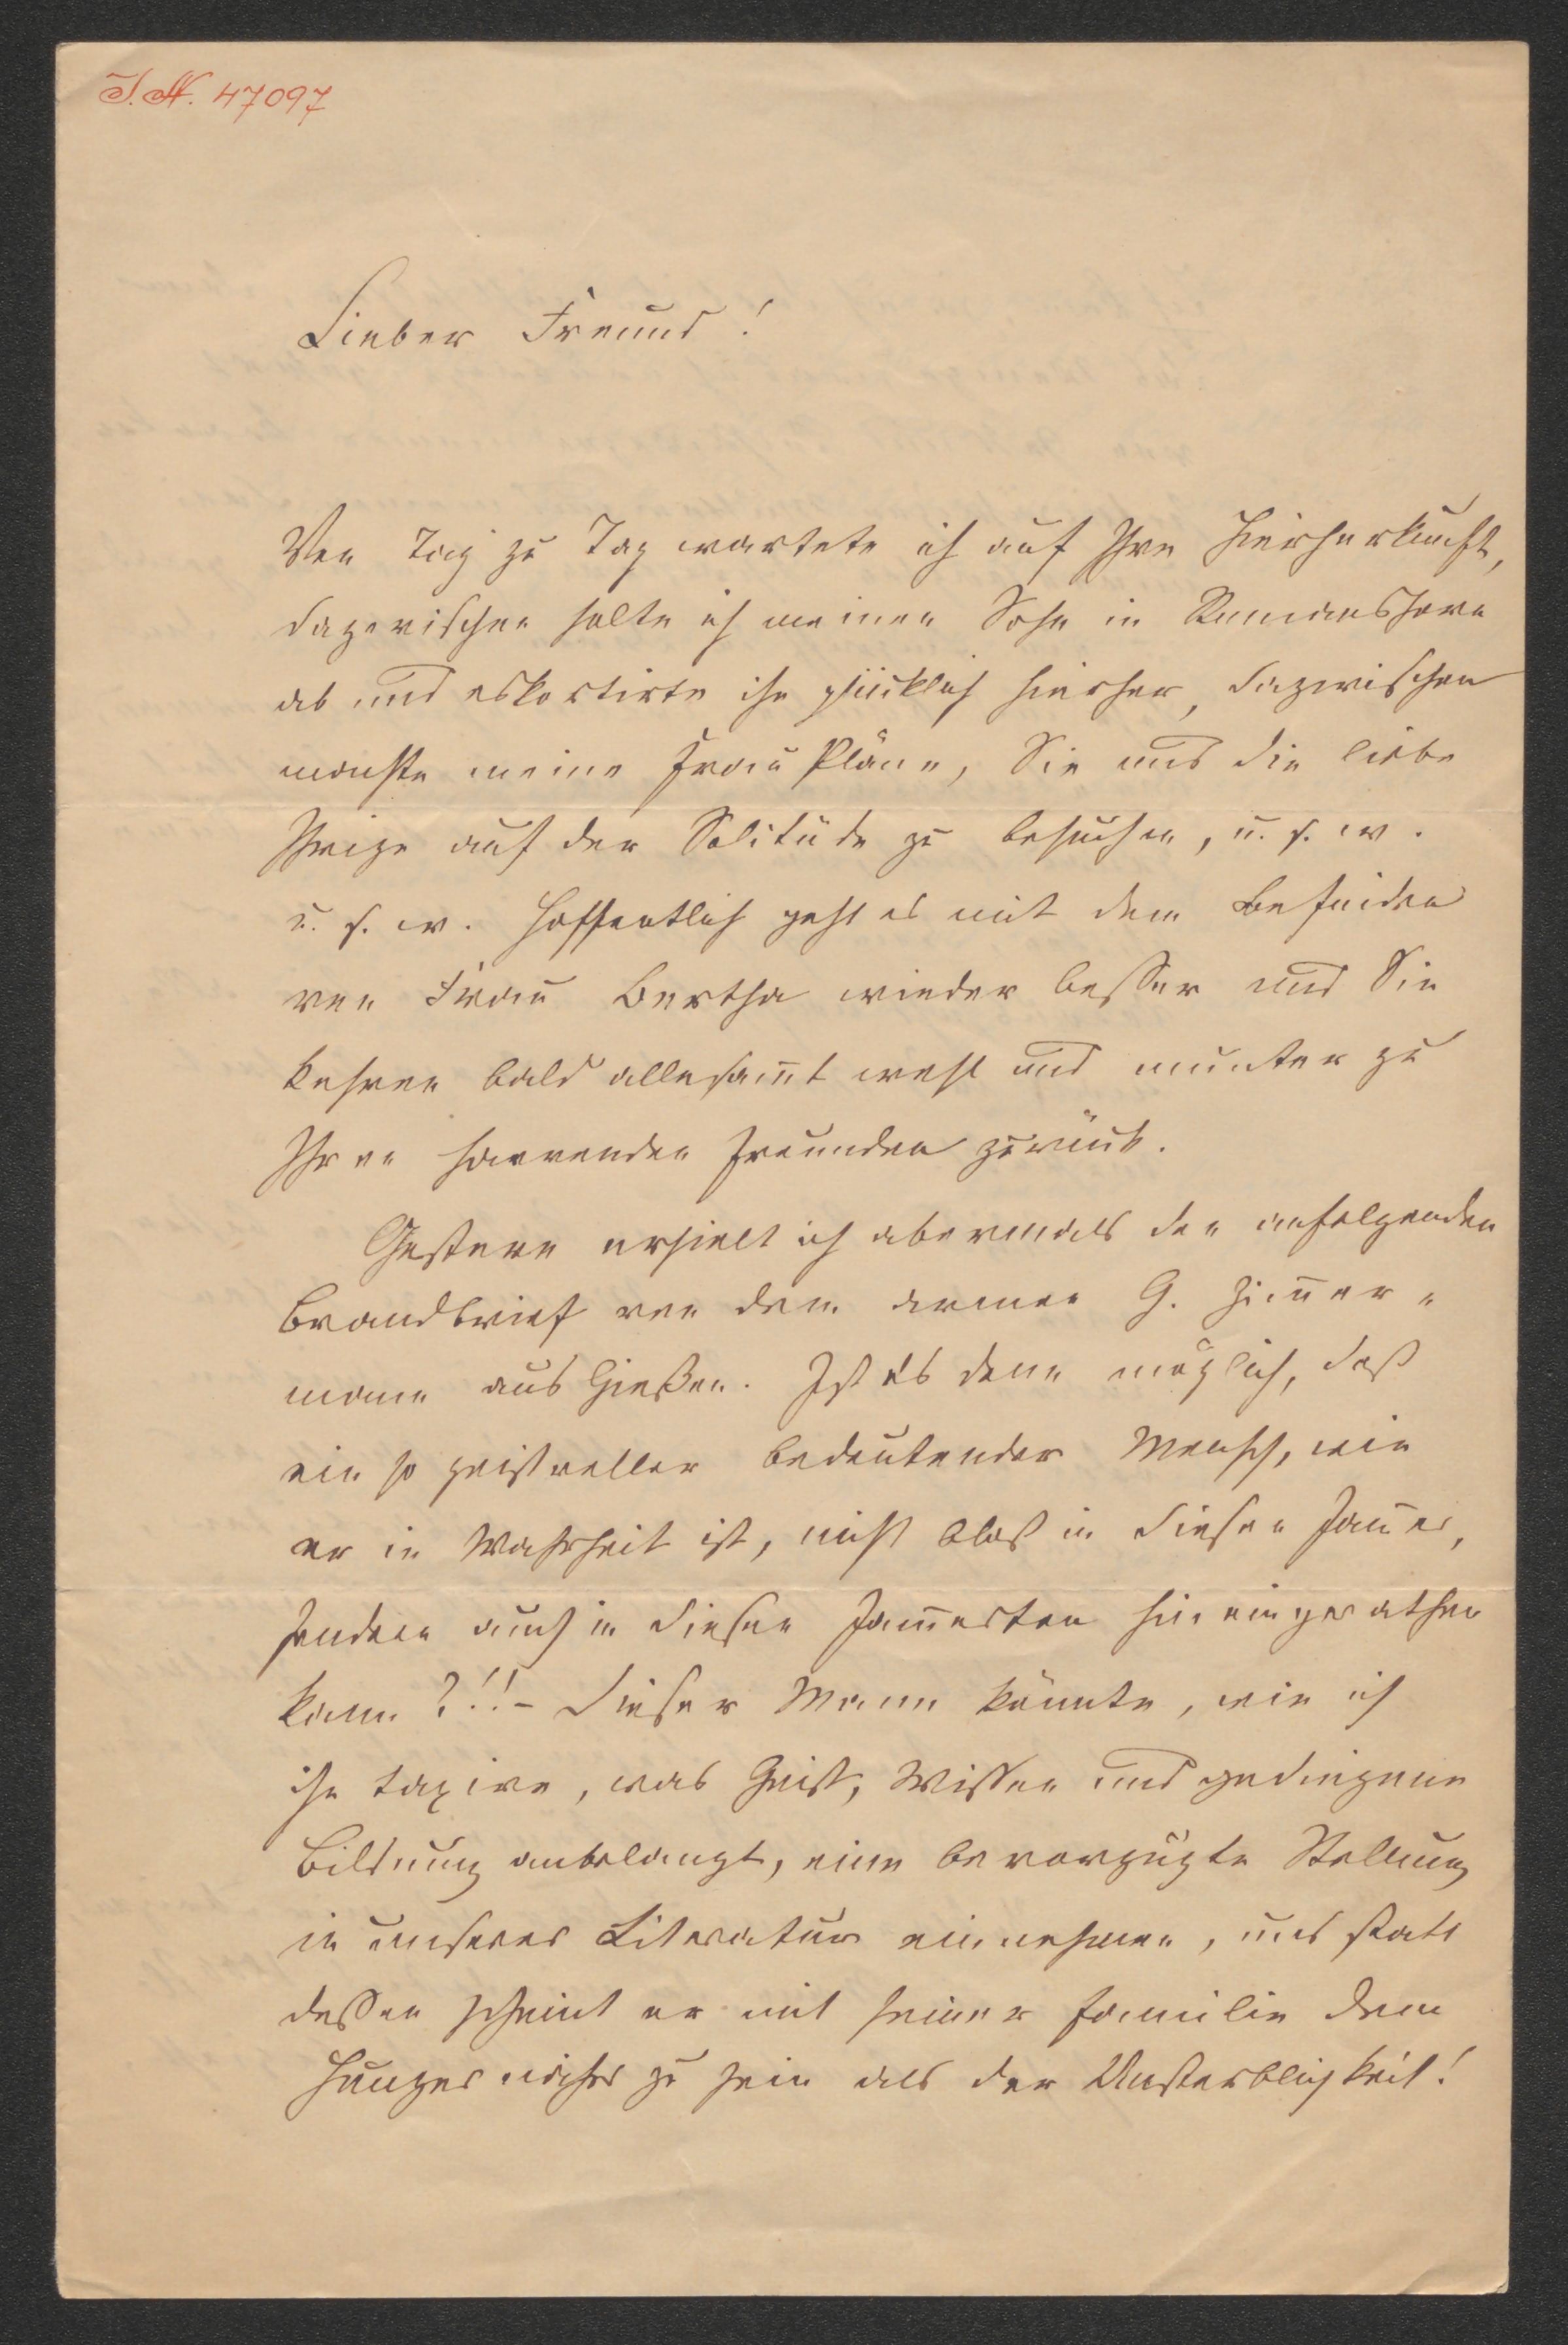 I. N. 47097
Lieber Freund!
Von Tag zu Tag wartete ich auf Ihre Hieherkunft,
dazwischen holte ich meinen Sohn in Romanshorn
ab und eskortirte ihn glücklich hierher, dazwischen
machte meine Frau Pläne, Sie und die liebe
Ihrige auf der Solitüde zu besuchen, u. s. w.
u. s. w. Hoffentlich geht es mit dem Befinden
von Frau Bertha wieder besser und Sie
kehren bald allesam̄t wohl und munter zu
Ihren harrenden Freunden zurück.
Gestern erhielt ich abermals den anfolgenden
Brandbrief von dem armen G. Zim̄er-
mann aus Gießen. Ist es denn möglich, daß
ein so geistvoller bedeutender Mensch, wie
er in Wahrheit ist, nicht blos in diesen Jam̄er,
sondern auch in diesen Jam̄erton hineingerathen
kann?!!- Dieser Mann könnte, wie ich
ihn taxire, was Geist, Wissen und gediegene
Bildung anbelangt, eine bevorzugte Stellung
in unserer Literatur einnehmen, und statt
dessen scheint er mit seiner Familie dem
Hunger näher zu sein als der Unsterblichkeit!